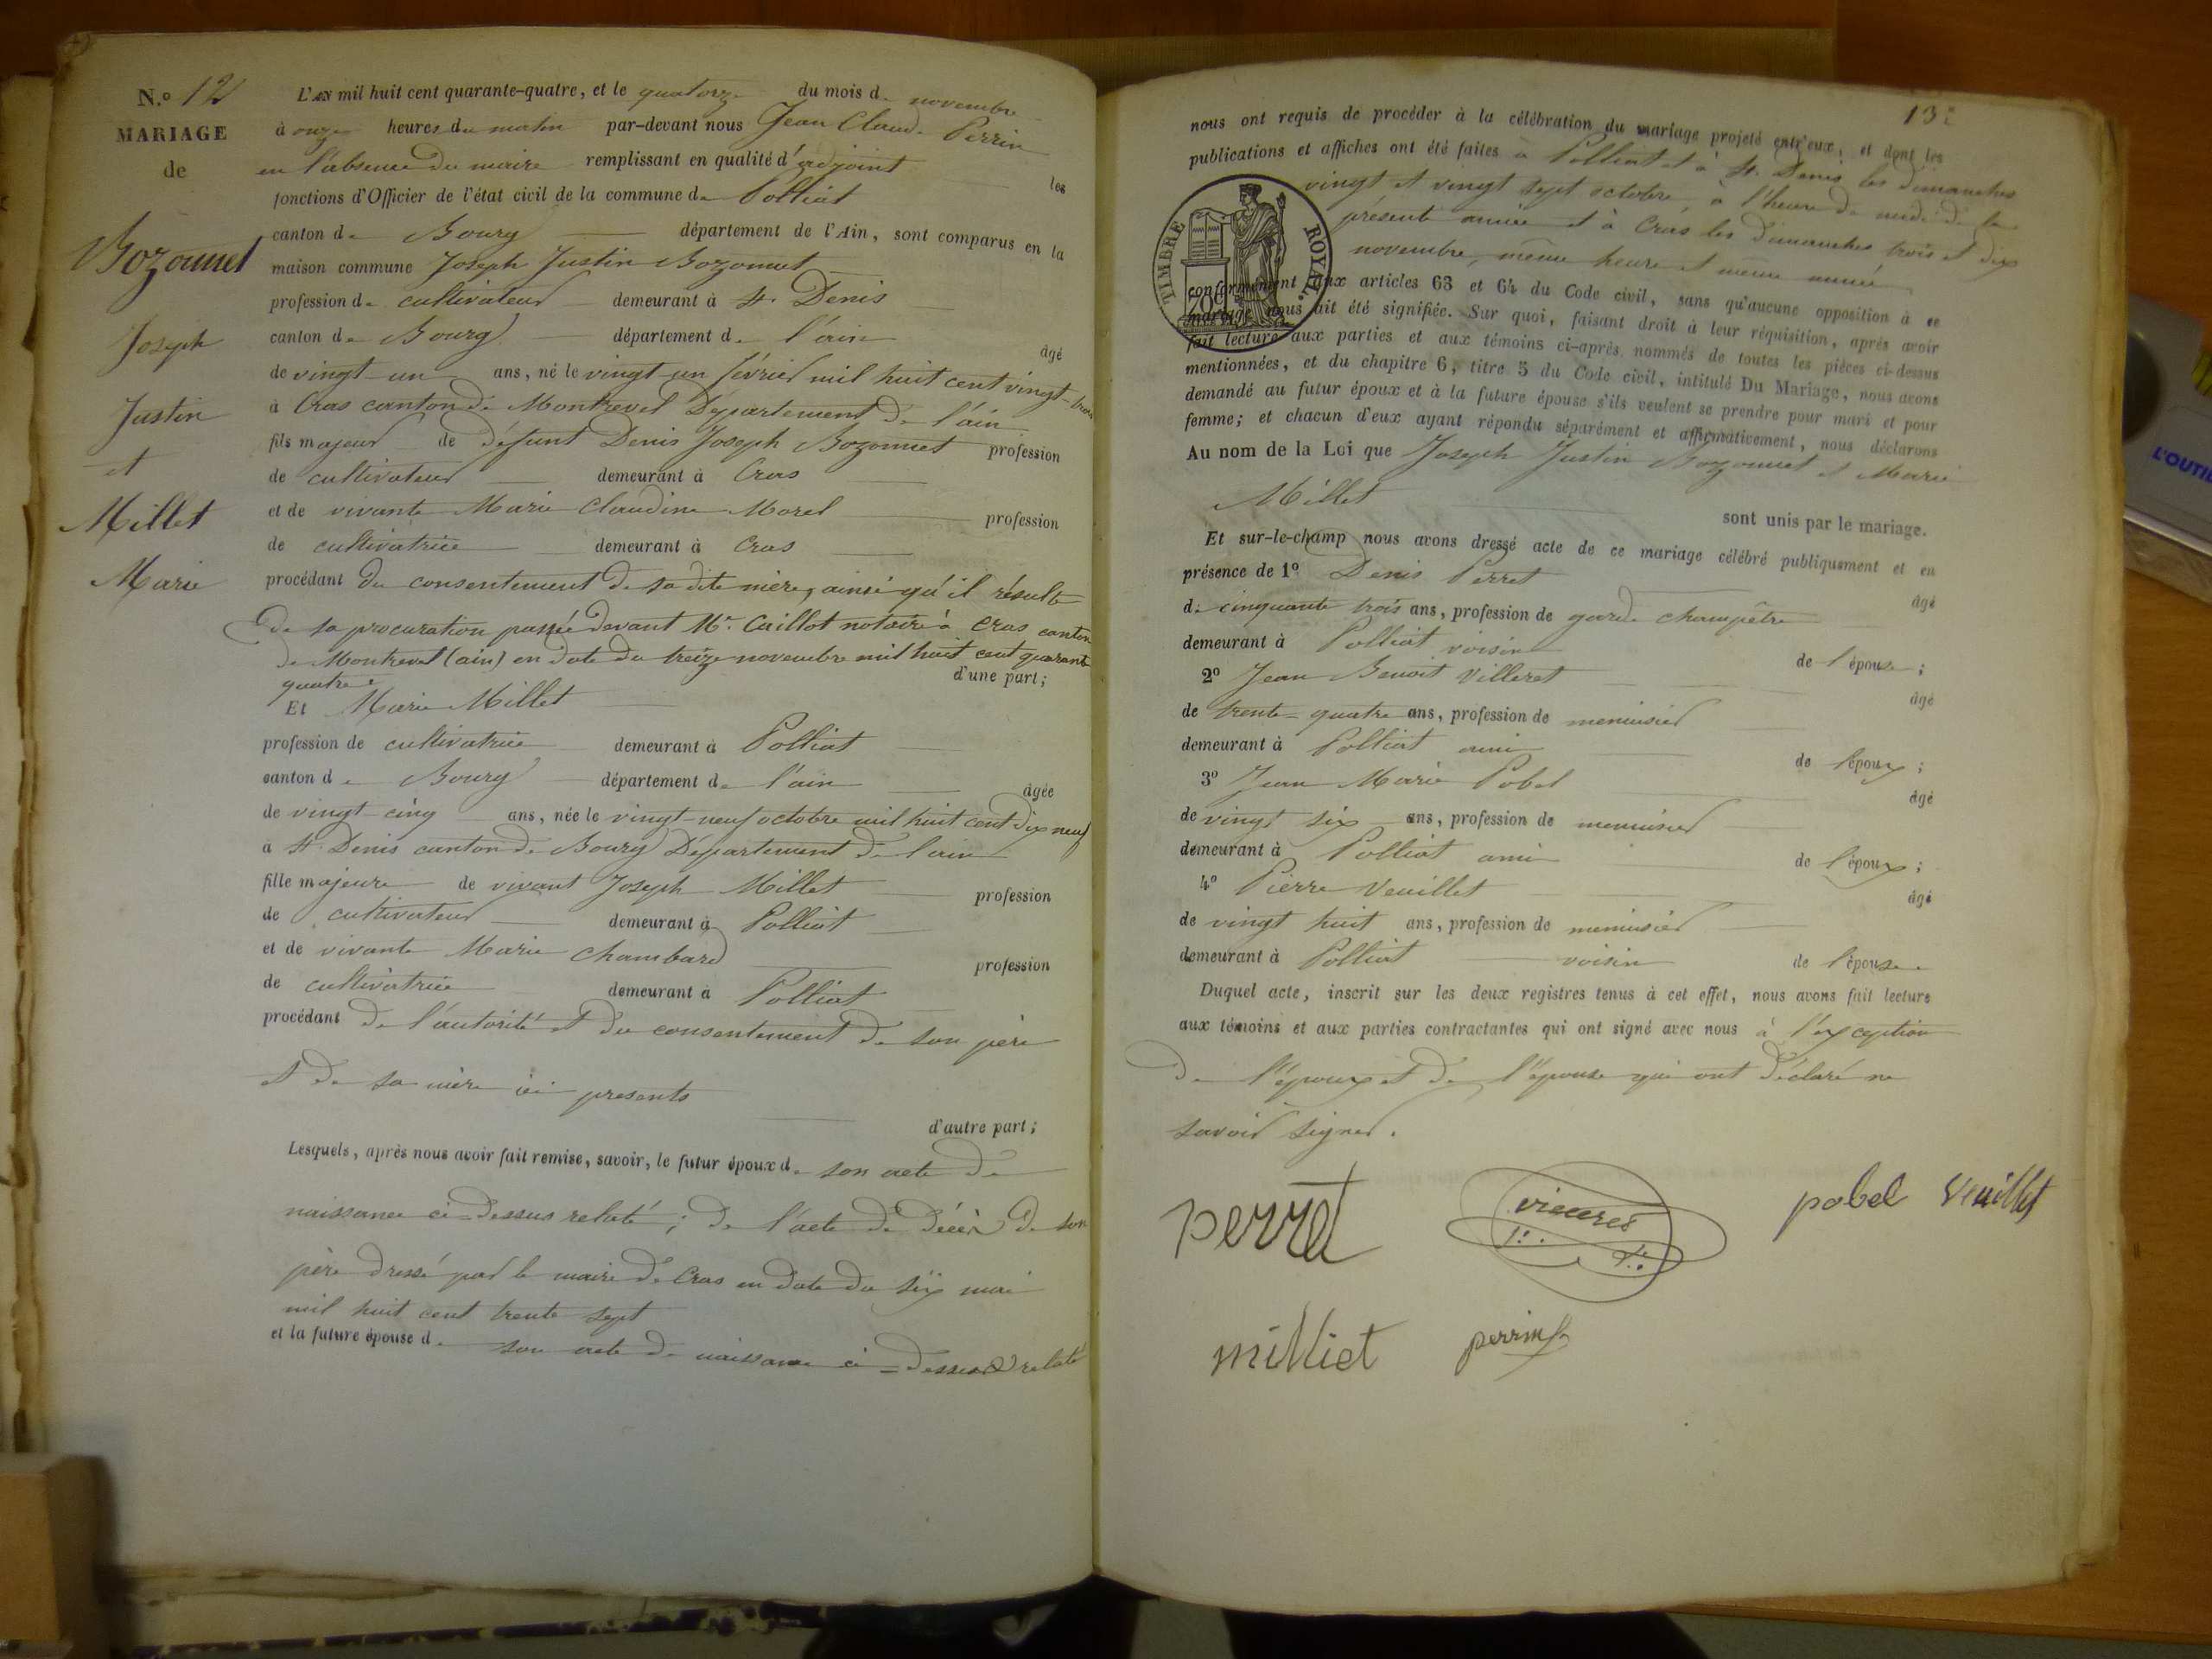 N.º 12
MARIAGE
de
Bozonnet
Joseph
Justin
et
Millet
Marie
L'AN mil huit cent quarante-quatre, et le quatorze du mois de novembre
à onze heures du matin par-devant nous Jean Claude Perrin
en l'absence du maire remplissant en qualité d'adjoint les
fonctions d'Officier de l'état civil de la commune de Polliat
canton de Bourg département de l'Ain, sont comparus en la
maison commune Joseph Justin Bozonnet
profession de cultivateur demeurant à St. Denis
canton de Bourg département de l'ain âgé
de vingt-un ans, né le vingt-un février mil huit cent vingt-trois
à Cras canton de Montrevel Département de l'ain
fils majeur de défunt Denis Joseph Bozonnet profession
de cultivateur demeurant à Cras
et de vivante Marie Claudine Morel profession
de cultivatrice demeurant à Cras
procédant du consentement de sa dite mère, ainsi qu'il résulte
de sa procuration passée devant Mr. Caillot notaire à Cras canton
de Montrevel (ain) en date du treize novembre mil huit cent quarante
quatre. d'une part;
Et Marie Millet
profession de cultivatrice demeurant à Polliat
canton de Bourg département de l'ain âgée
de vingt-cinq ans, née le vingt-neuf octobre mil huit cent dix neuf
à St. Denis canton de Bourg Département de l'ain
fille majeure de vivant Joseph Millet profession
de cultivateur demeurant à Polliat
et de vivante Marie Chambard profession
de cultivatrice demeurant à Polliat
procédant de l'autorité et du consentement de son père
et de sa mère ici presents
d'autre part;
Lesquels, après nous avoir fait remise, savoir, le futur époux de son acte de
naissance ci-dessus relaté; de l'acte de décès de son
père dressé par le maire de Cras en date du six mai
mil huit cent trente sept
et la future épouse de son acte de naissance ci-dessus relaté
13
nous ont requis de procéder à la célébration du mariage projeté entr'eux, et dont les
publications et affiches ont été faites à Polliat et à St. Denis les dimanches
vingt et vingt sept octobre, à l'heure de midi de la
présente année et à Cras les dimanches trois et dix
novembre, même heure et même année
TIMBRE ROYAL.
70c
conformément aux articles 63 et 64 du Code civil, sans qu'aucune opposition à ce
mariage nous ait été signifiée. Sur quoi, faisant droit à leur réquisition, après avoir
fait lecture aux parties et aux témoins ci-après nommés de toutes les pièces ci-dessus
mentionnées, et du chapitre 6, titre 5 du Code civil, intitulé Du Mariage, nous avons
demandé au futur époux et à la future épouse s'ils veulent se prendre pour mari et pour
femme; et chacun d'eux ayant répondu séparément et affirmativement, nous déclarons
Au nom de la Loi que Joseph Justin Bozonnet et Marie
Millet
sont unis par le mariage.
Et sur-le-champ nous avons dressé acte de ce mariage célébré publiquement et en
présence de 1º Denis Perret âgé
de cinquante trois ans, profession de garde champêtre
demeurant à Polliat voisin de l'épouse;
2º Jean Benoit Villeret âgé
de trente-quatre ans, profession de menuisier
demeurant à Polliat ami de l'époux;
3º Jean Marie Pobel âgé
de vingt six ans, profession de menuisier
demeurant à Polliat ami de l'époux;
4º Pierre Veuillet âgé
de vingt huit ans, profession de menuisier
demeurant à Polliat voisin de l'épouse.
Duquel acte, inscrit sur les deux registres tenus à cet effet, nous avons fait lecture
aux témoins et aux parties contractantes qui ont signé avec nous à l'exception
de l'époux et de l'épouse qui ont déclaré ne
savoir signer.
perret
pobel veuillet
milliet perrin